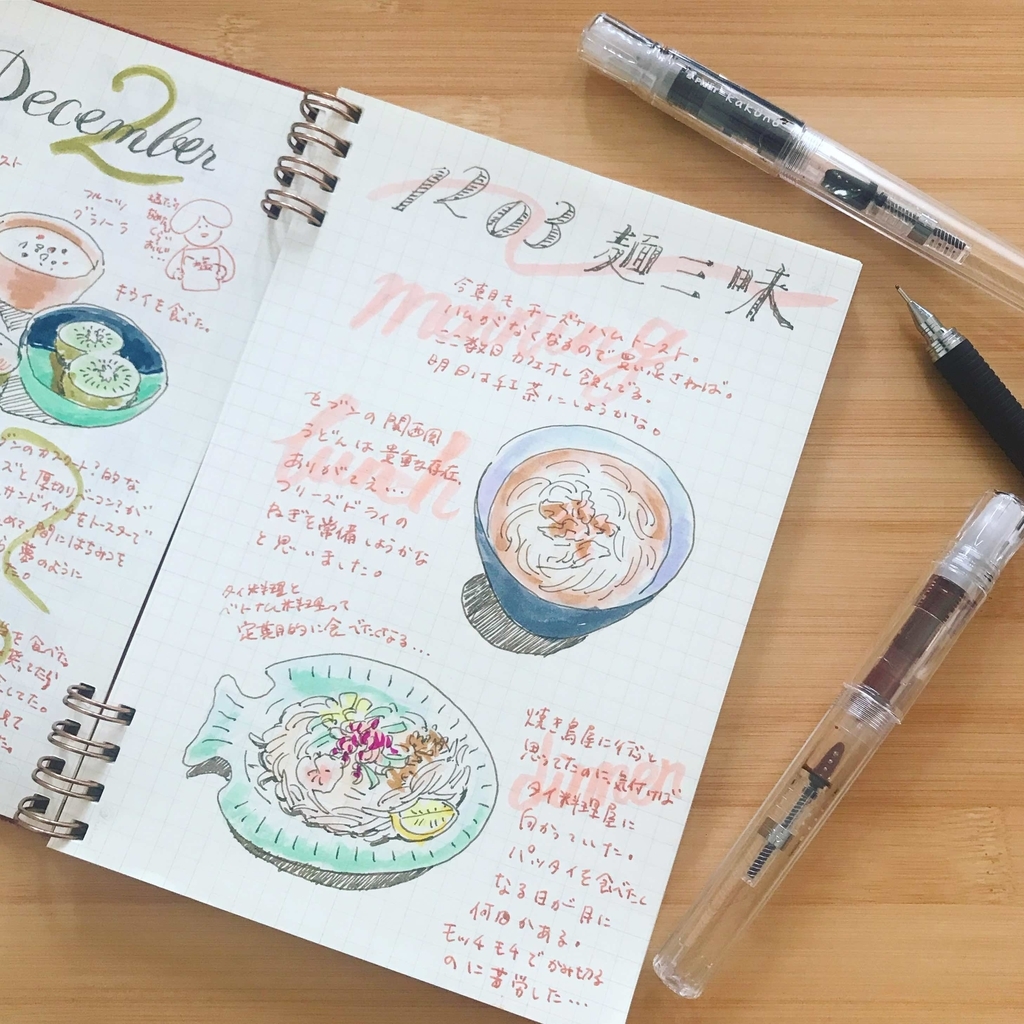 December
2
スト
フルーツ
グラノーラ
塩
キウイを食べた。
厚切りベーコン?が
サンドイッチをトースターで
間にはちみつを
夢のように
た。
を食べた
してた。
見て
1203 麺三味
morning
今朝もチーズ+ハムトースト。
ハムがなくなるので買い足さねば。
ここ数日カフェオレ飲んでる。
明日は紅茶にしようかな。
lunch
セブンの関西風
うどんは貴重な存在。
ありがてえ…
フリーズドライの
ねぎを常備しようかな
と思いました。
タイ料理と
ベトナム料理って
定期的に食べたくなる…
dinner
焼き鳥屋に行こうと
思ってたのに気付けば
タイ料理屋に
向かっていた。
パッタイを食べたく
なる日が月に
何回かある。
モッチモチでかみ切る
のに苦労した…
kakuno